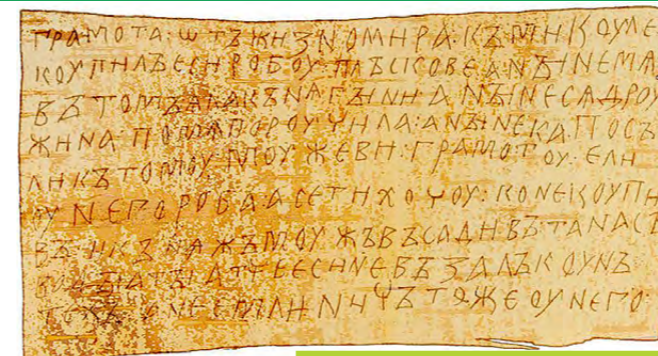 ГРАМОТА:ѠТЪЖИЗНОМИРА:КЪМИКОУЛЕ
КОУПИЛЪЕСИРОБОУ:ПЛЪСКОВЕ:АНЪІНЕМѦ
ВЪТОМЪ:ѦЛАКЪНѦГЪІНИ:АНЪІНЕСѦДРОУ
ЖИНА:ПОМѦПОРОУЧИЛА:АНЪІНЕКА:ПОСЪ
ЛИКЪТОМОУ:МОУЖЕВИ:ГРАМОТОУ:ЕЛИ
ОУНЕГОРОБА:АСЕТИХОЧОУ:КОНЕКОУПИ
ВЪ:ИКЪНѦЖЪМОУЖЪВЪСАДИВЪ:ТАНАСЪ
ВОДЪІ:АТЪІАТЧЕЕСИНЕВЪЗАЛЪКОУНЪ
ТЕХЪ:АНЕЕМЛИ:НИЧЪТОЖЕОУНЕГО: